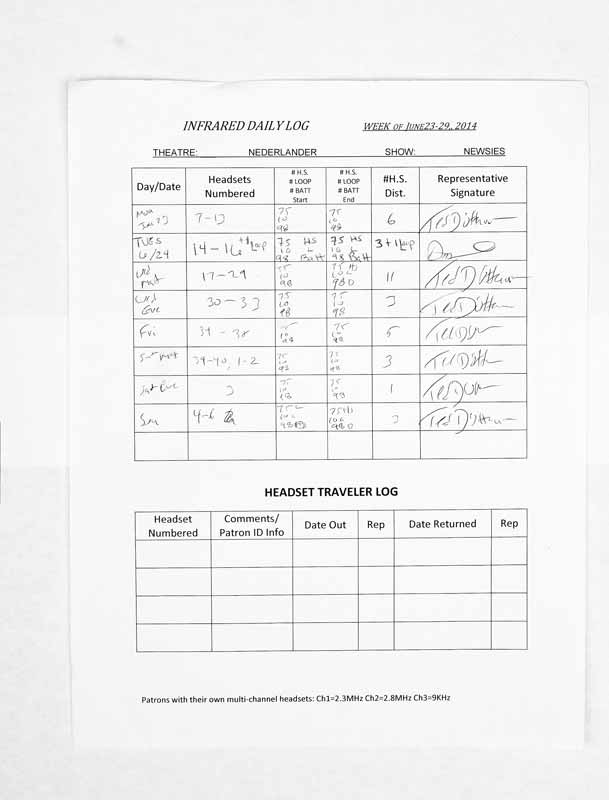 INFRARED DAILY LOG WEEK OF JUNE23-29,, 2014
THEATRE: NEDERLANDER SHOW: NEWSIES
Day/Date Headsets Numbered # H.S. # LOOP # BATT Start # H.S. # LOOP # BATT End #H.S. Dist. Representative Signature
Mon 75 10 98 75 10 98 6
TUES 6/24 14-16 +1 Loop 75 HS 10 L 98 Batt 75 HS 10 L 98 Batt 3+1 Loop
Wed Mat 17-29 75 10 98 75 10 98 11
Wed Eve 30-33 75 10 98 75 10 98
Fri 34-38 75 10 98 75 10 98 5
Sat Mat 39-40, 1-2 75 10 98 75 10 98 3
Sat Eve 3 75 10 98 75 10 98 1
Sun 4-6 75 10 98 75 10 98 3
HEADSET TRAVELER LOG
Headset Numbered Comments/ Patron ID Info Date Out Rep Date Returned Rep
Patrons with their own multi-channel headsets: Ch1=2.3MHz Ch2=2.8MHz Ch3=9KHz